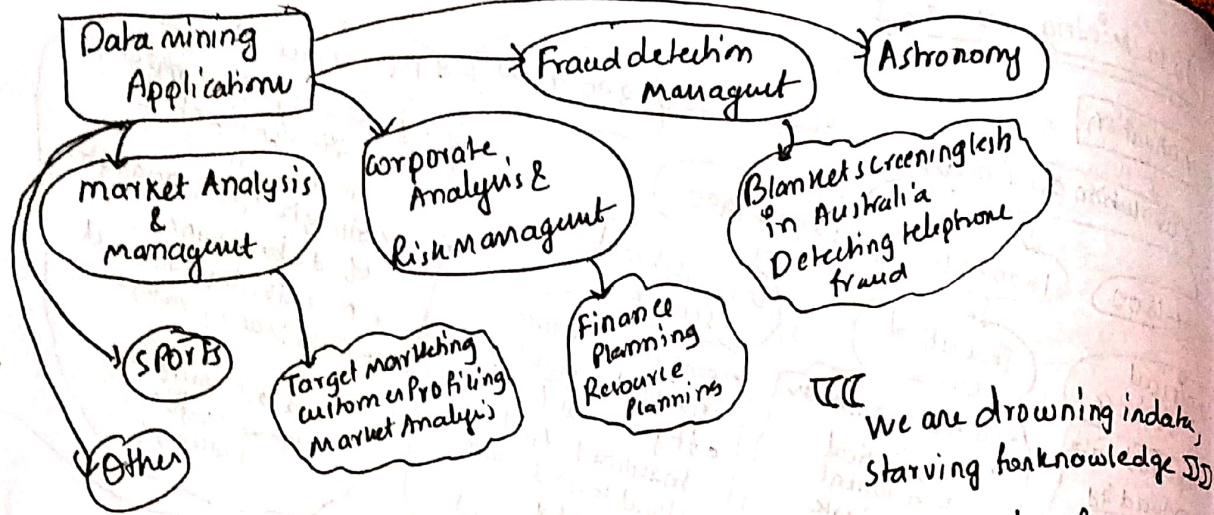 Data mining
Applications
Fraud detection
Managmt
Astronomy
Market Analysis
&
managemt
Corporate
Analysis &
Risk Managemt
Blanket screening
in Australia
Detecting telephone
fraud
Sports
Target marketing
customer Profiling
Market Analysis
Finance
Planning
Resource
Planning
Other
“ we are drowning in data,
starving for knowledge ”